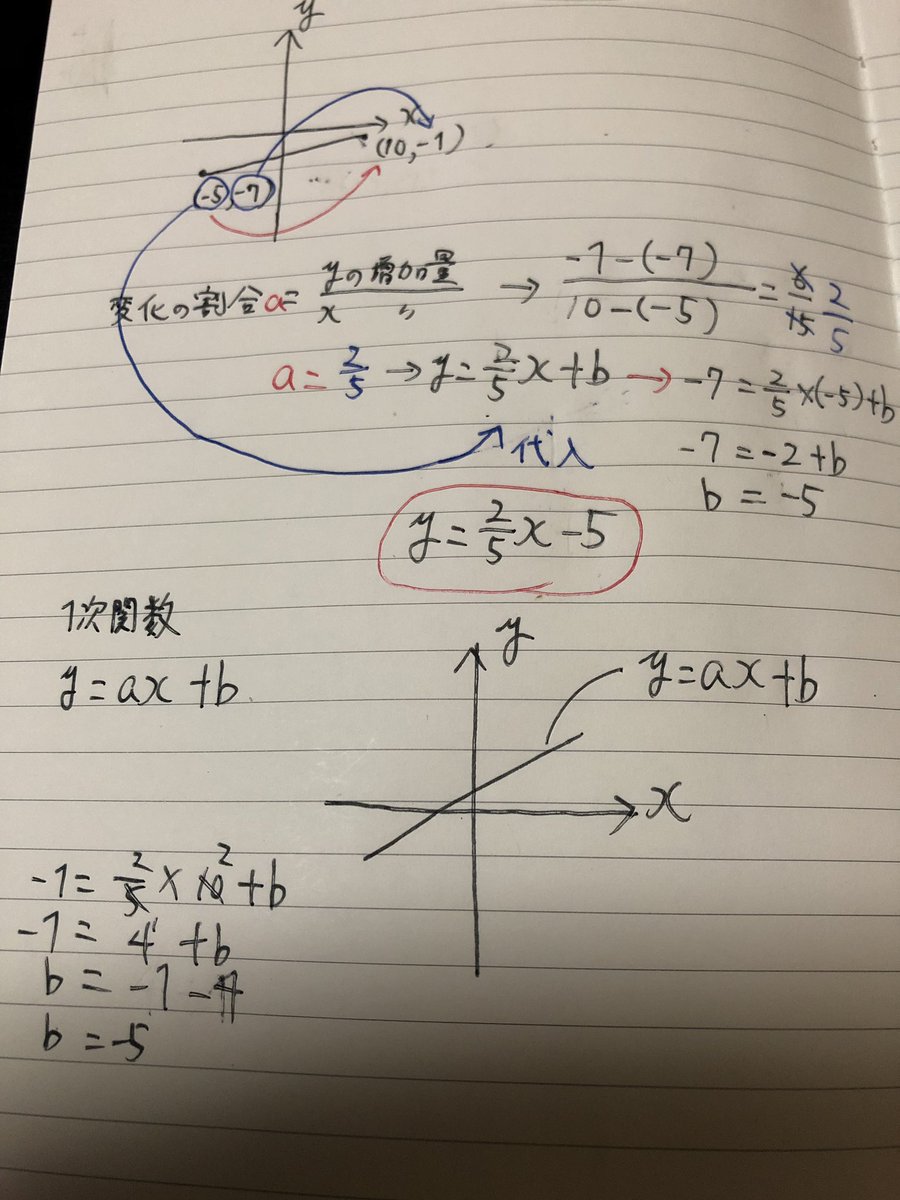 y
x
(10,-1)
(-5,-7)
変化の割合a= yの増加量/x 〃 → -1-(-7)/10-(-5) = 6/15 2/5
a=2/5 → y=2/5x+b → -7=2/5×(-5)+b
代入
-7=-2+b
b=-5
y=2/5x-5
1次関数
y=ax+b
y
y=ax+b
x
-1=2/5×10 2+b
-1=4+b
b=-1-4
b=-5